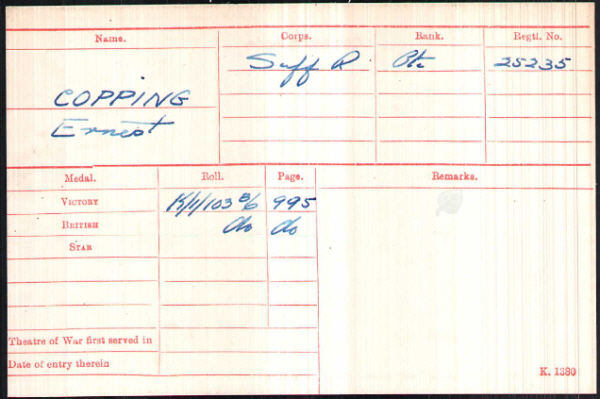 Name. Corps. Rank. Regtl. No.
Suff R Pte 25235
COPPING
Ernest
Medal. Roll. Page. Remarks.
VICTORY K/1/103 B/6 995
BRITISH do do
STAR
Theatre of War first served in
Date of entry therein
K. 1380